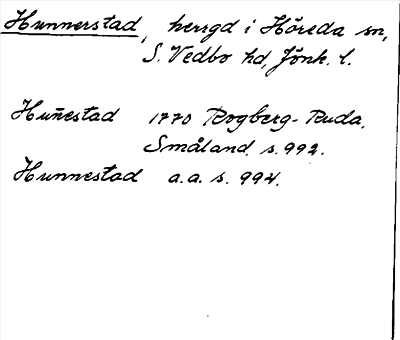 Hunnerstad, herrgd i Höreda sn,
S. Vedbo hd, Jönk. l.
Huñestad 1770 Rogberg-Ruda,
Småland, s. 992.
Hunnestad a.a. s. 994.